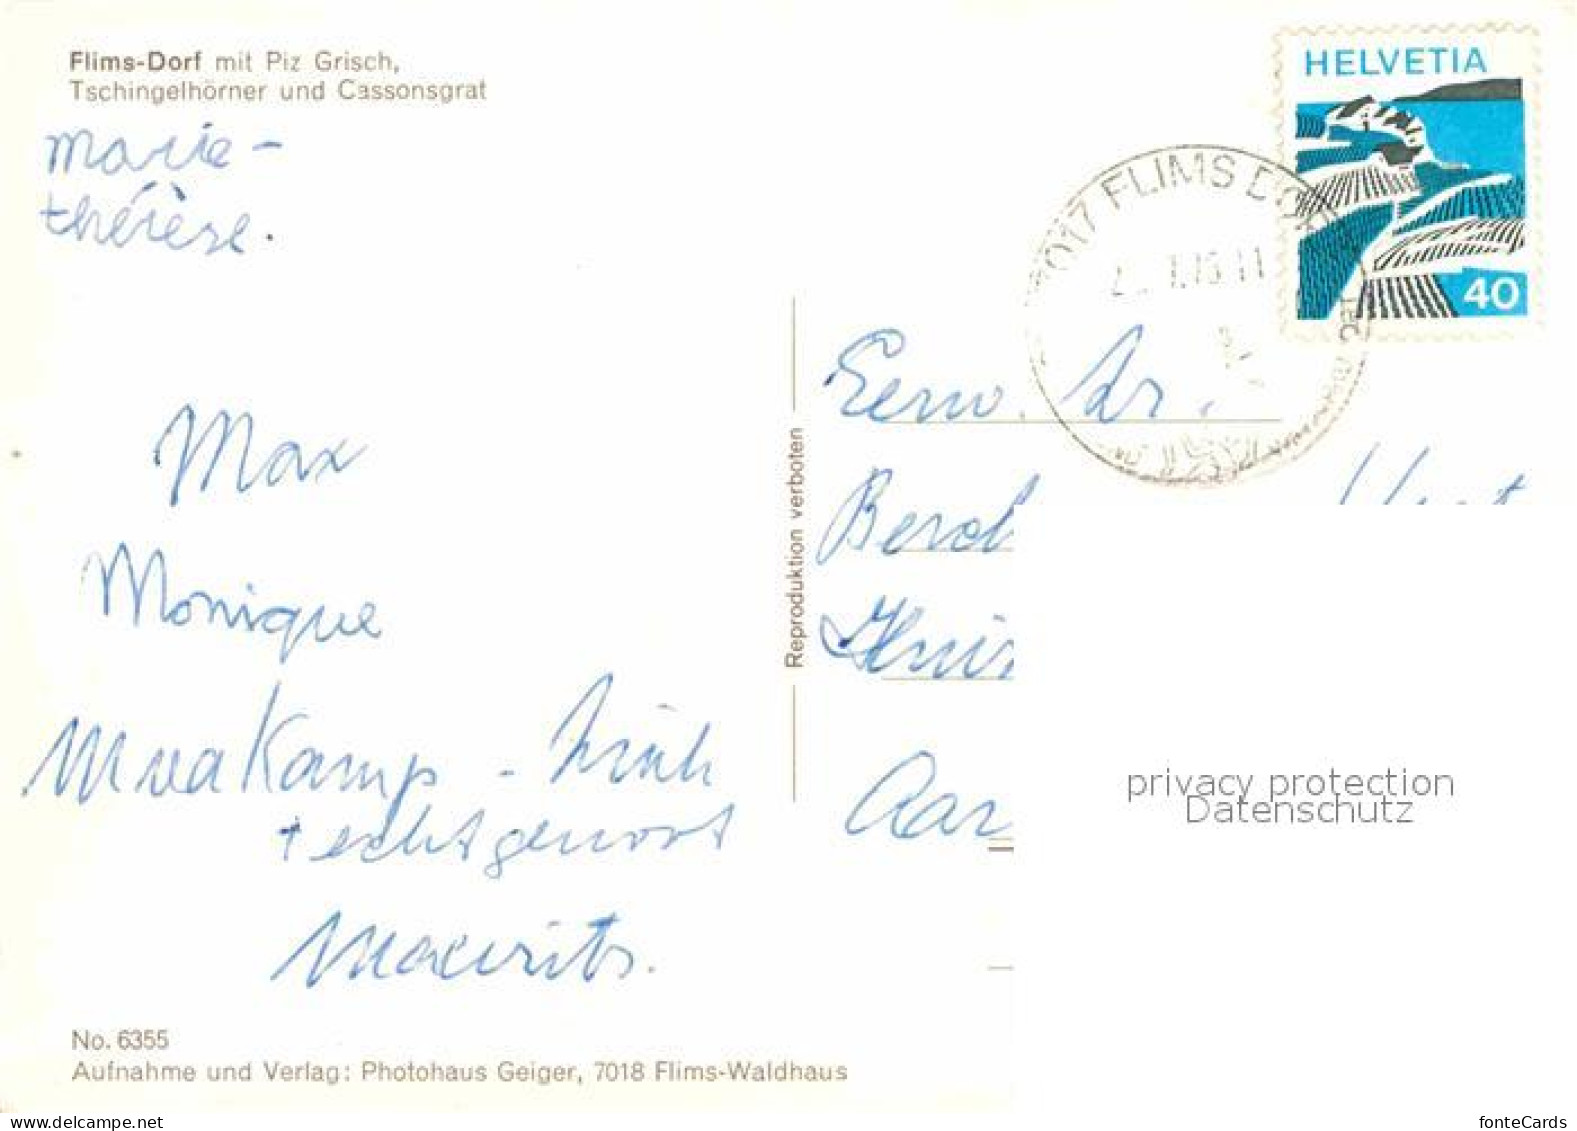 Flims-Dorf mit Piz Grisch,
Tschingelhörner und Cassonsgrat
Marie-
thérèse.
Max
Monique
Kamp -
+ echtgenoot
Maurits.
No. 6355
Aufnahme und Verlag: Photohaus Geiger, 7018 Flims-Waldhaus
Reproduktion verboten
HELVETIA
40
7017 FLIMS DORF
Eerw. Dr.
privacy protection
Datenschutz
delcampe.net
fonteCards